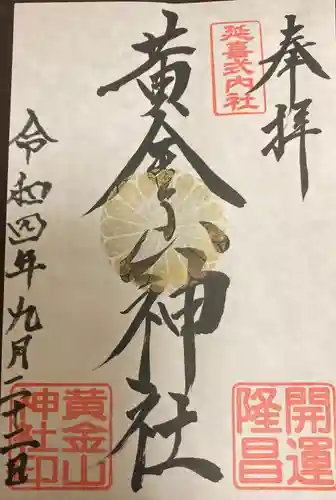 奉拝
延喜式内社
黄金山神社
令和四年九月二十二日
開運
隆昌
黄金山
神社印